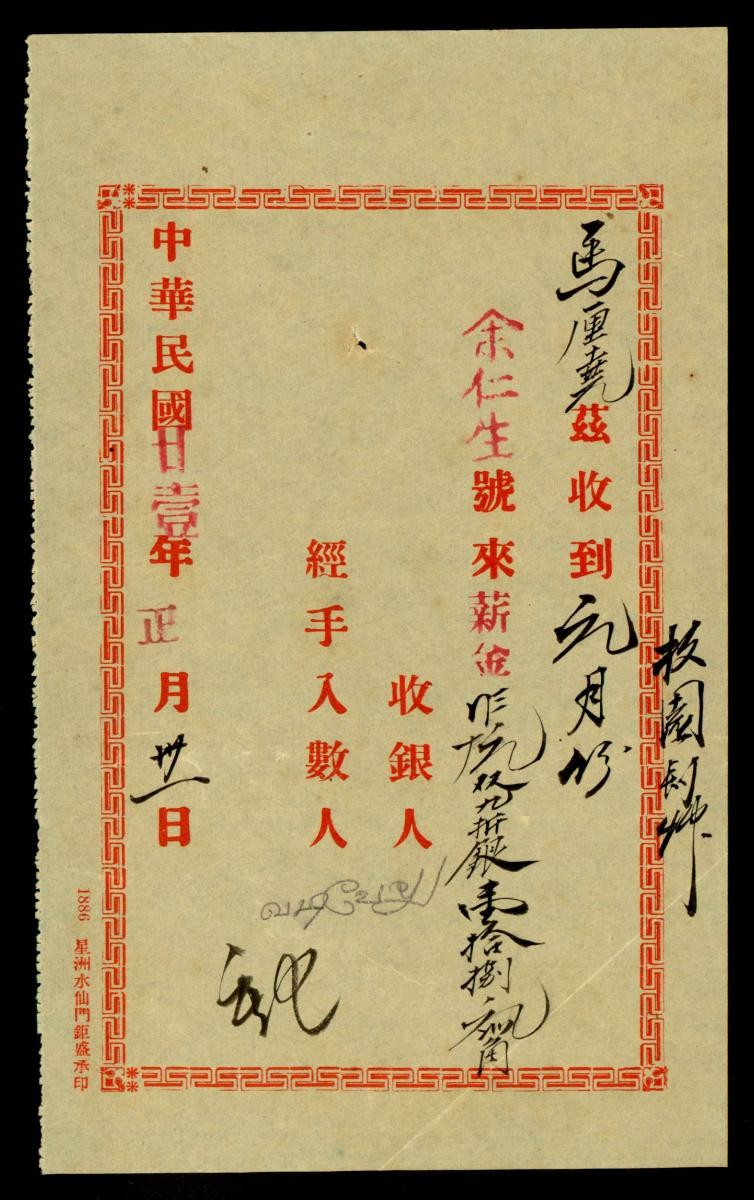 馬厘堯茲收到元月份
余仁生號來薪金
銀壹拾捌元四角
收銀人
經手入數人
中華民國廿壹年正月卅一日
1886 星洲水仙門鉅盛承印